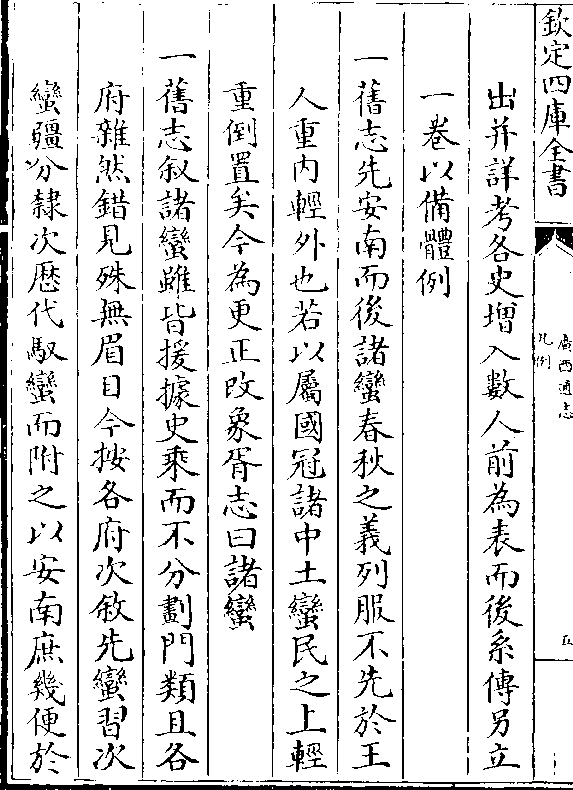 欽定四庫全書
廣西通志
凡例
五
出并詳考各史增入數人前為表而後系傳另立
一卷以備體例
一舊志先安南而後諸蠻春秋之義列服不先於王
人重内輕外也若以屬國冠諸中土蠻民之上輕
重倒置矣今為更正改象胥志曰諸蠻
一舊志叙諸蠻雖皆援據史乘而不分劃門類且各
府雜然錯見殊無眉目今按各府次敘先蠻習次
蠻疆分隸次歴代馭蠻而附之以安南庶幾便於